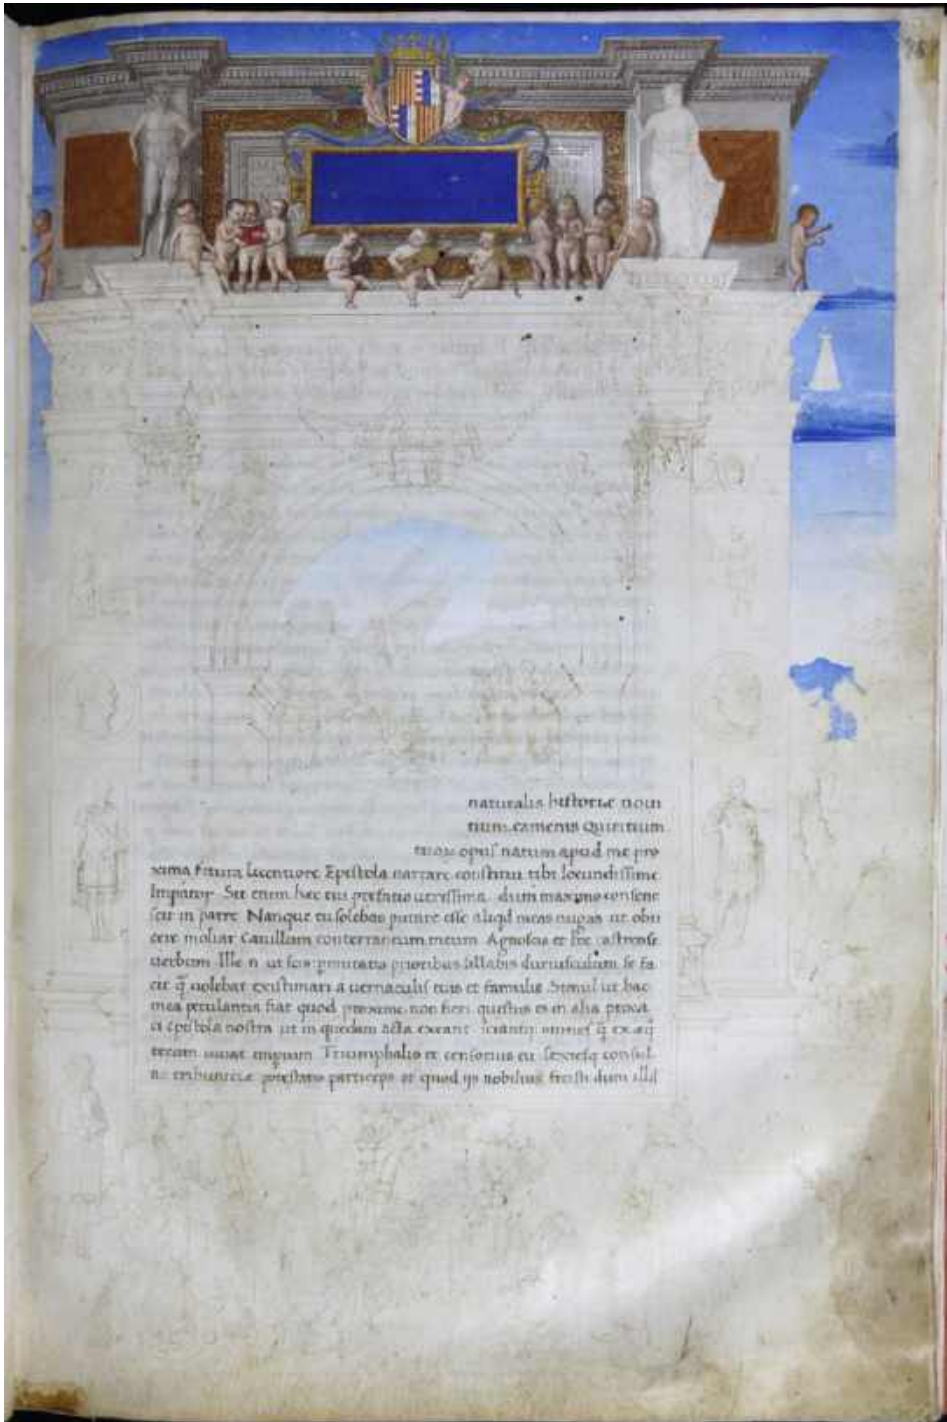 naturalis historiæ noui
tium camenis Quiritium
tuoꝝ opus natum apud me pro
xima fetura licentiore Epistola narrare constitui tibi Iocundissime
Imperator Sit enim hec tui prefatio uerissima dum maximo consene
scit in patre Nanque tu solebas putare esse aliqd meas nugas ut obii
cere moliar Catullum conterraneum meum Agnoscis et hoc castrense
uerbum Ille n ut scis permutatis prioribus sillabis duriusculum se fe
cit q̃ uolebat existimari a uernaculis tuis et famulis Simul ut hac
mea petulantia fiat quod proxime non fieri questus es in alia procaci
epistola nostra ut in quedam acta exeant sciantq omnes q̃ ex eq
tecum uiuat impium Triumphalis et censorius tu sexiesq consul
ac tribunicie potestatis particeps et quod iis nobilius fecisti dum illd